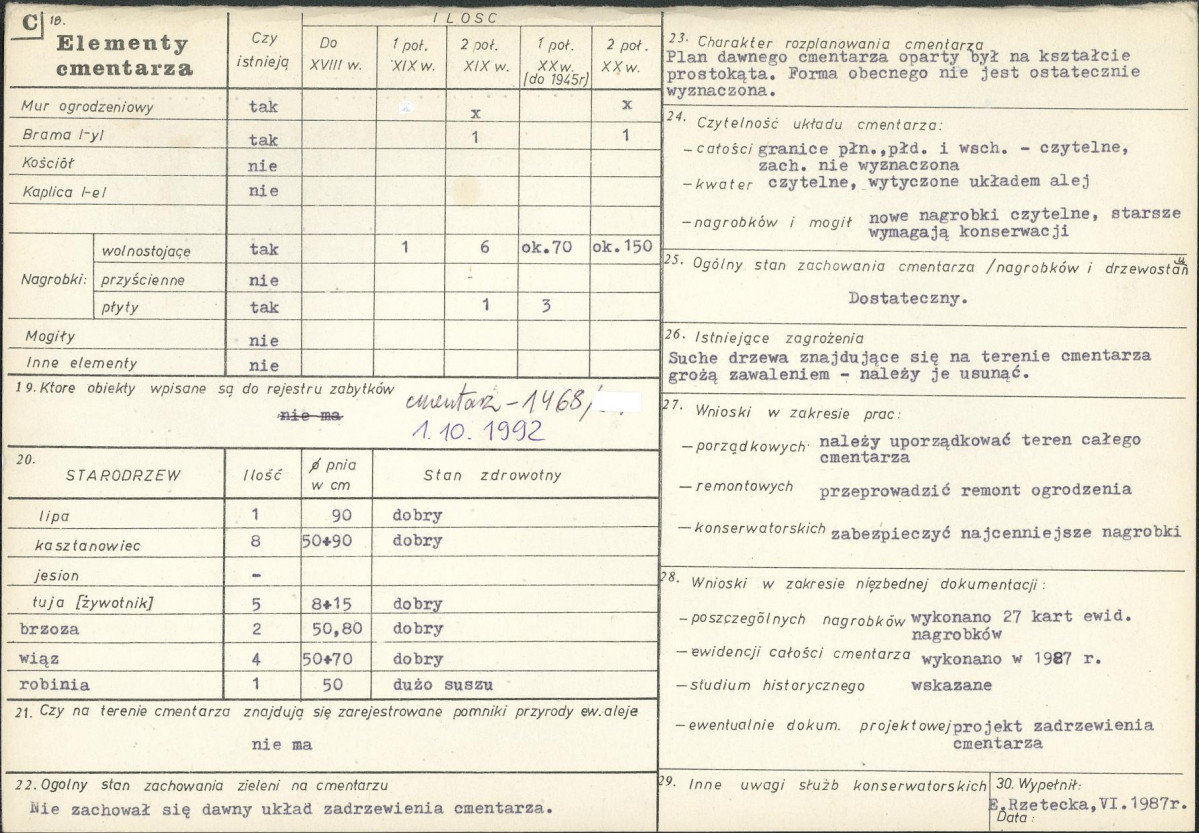 C 18. Elementy cmentarza
Czy istnieją
ILOSC
Do XVIII w.
1 poł. XIX w.
2 poł. XIX w.
1 poł. XX w. (do 1945r)
2 poł. XX w.
Mur ogrodzeniowy tak x x
Brama /-y/ tak 1 1
Kościół nie
Kaplica /-e/ nie
Nagrobki:
wolnostojące tak 1 6 ok.70 ok.150
przyścienne nie -
płyty tak 1 3
Mogiły nie
Inne elementy nie
19. Ktore obiekty wpisane są do rejestru zabytków
nie ma cmentarz - 1468/
1.10.1992
20.
STARODRZEW Ilość ø pnia w cm Stan zdrowotny
lipa 1 90 dobry
kasztanowiec 8 50+90 dobry
jesion -
tuja [żywotnik] 5 8+15 dobry
brzoza 2 50,80 dobry
wiąz 4 50+70 dobry
robinia 1 50 dużo suszu
21. Czy na terenie cmentarza znajdują się zarejestrowane pomniki przyrody ew. aleje
nie ma
22. Ogolny stan zachowania zieleni na cmentarzu
Nie zachował się dawny układ zadrzewienia cmentarza.
23. Charakter rozplanowania cmentarza
Plan dawnego cmentarza oparty był na kształcie
prostokąta. Forma obecnego nie jest ostatecznie
wyznaczona.
24. Czytelność układu cmentarza:
- całości granice płn.,płd. i wsch. - czytelne,
zach. nie wyznaczona
- kwater czytelne, wytyczone układem alej
- nagrobków i mogił nowe nagrobki czytelne, starsze
wymagają konserwacji
25. Ogólny stan zachowania cmentarza /nagrobków i drzewostanu
Dostateczny.
26. Istniejące zagrożenia
Suche drzewa znajdujące się na terenie cmentarza
grożą zawaleniem - należy je usunąć.
27. Wnioski w zakresie prac:
- porządkowych należy uporządkować teren całego
cmentarza
- remontowych przeprowadzić remont ogrodzenia
- konserwatorskich zabezpieczyć najcenniejsze nagrobki
28. Wnioski w zakresie nięzbednej dokumentacji:
- poszczególnych nagrobków wykonano 27 kart ewid.
nagrobków
- ewidencji całości cmentarza wykonano w 1987 r.
- studium historycznego wskazane
- ewentualnie dokum. projektowej projekt zadrzewienia
cmentarza
29. Inne uwagi służb konserwatorskich
30. Wypełnił:
E.Rzetecka,VI.1987r.
Data: